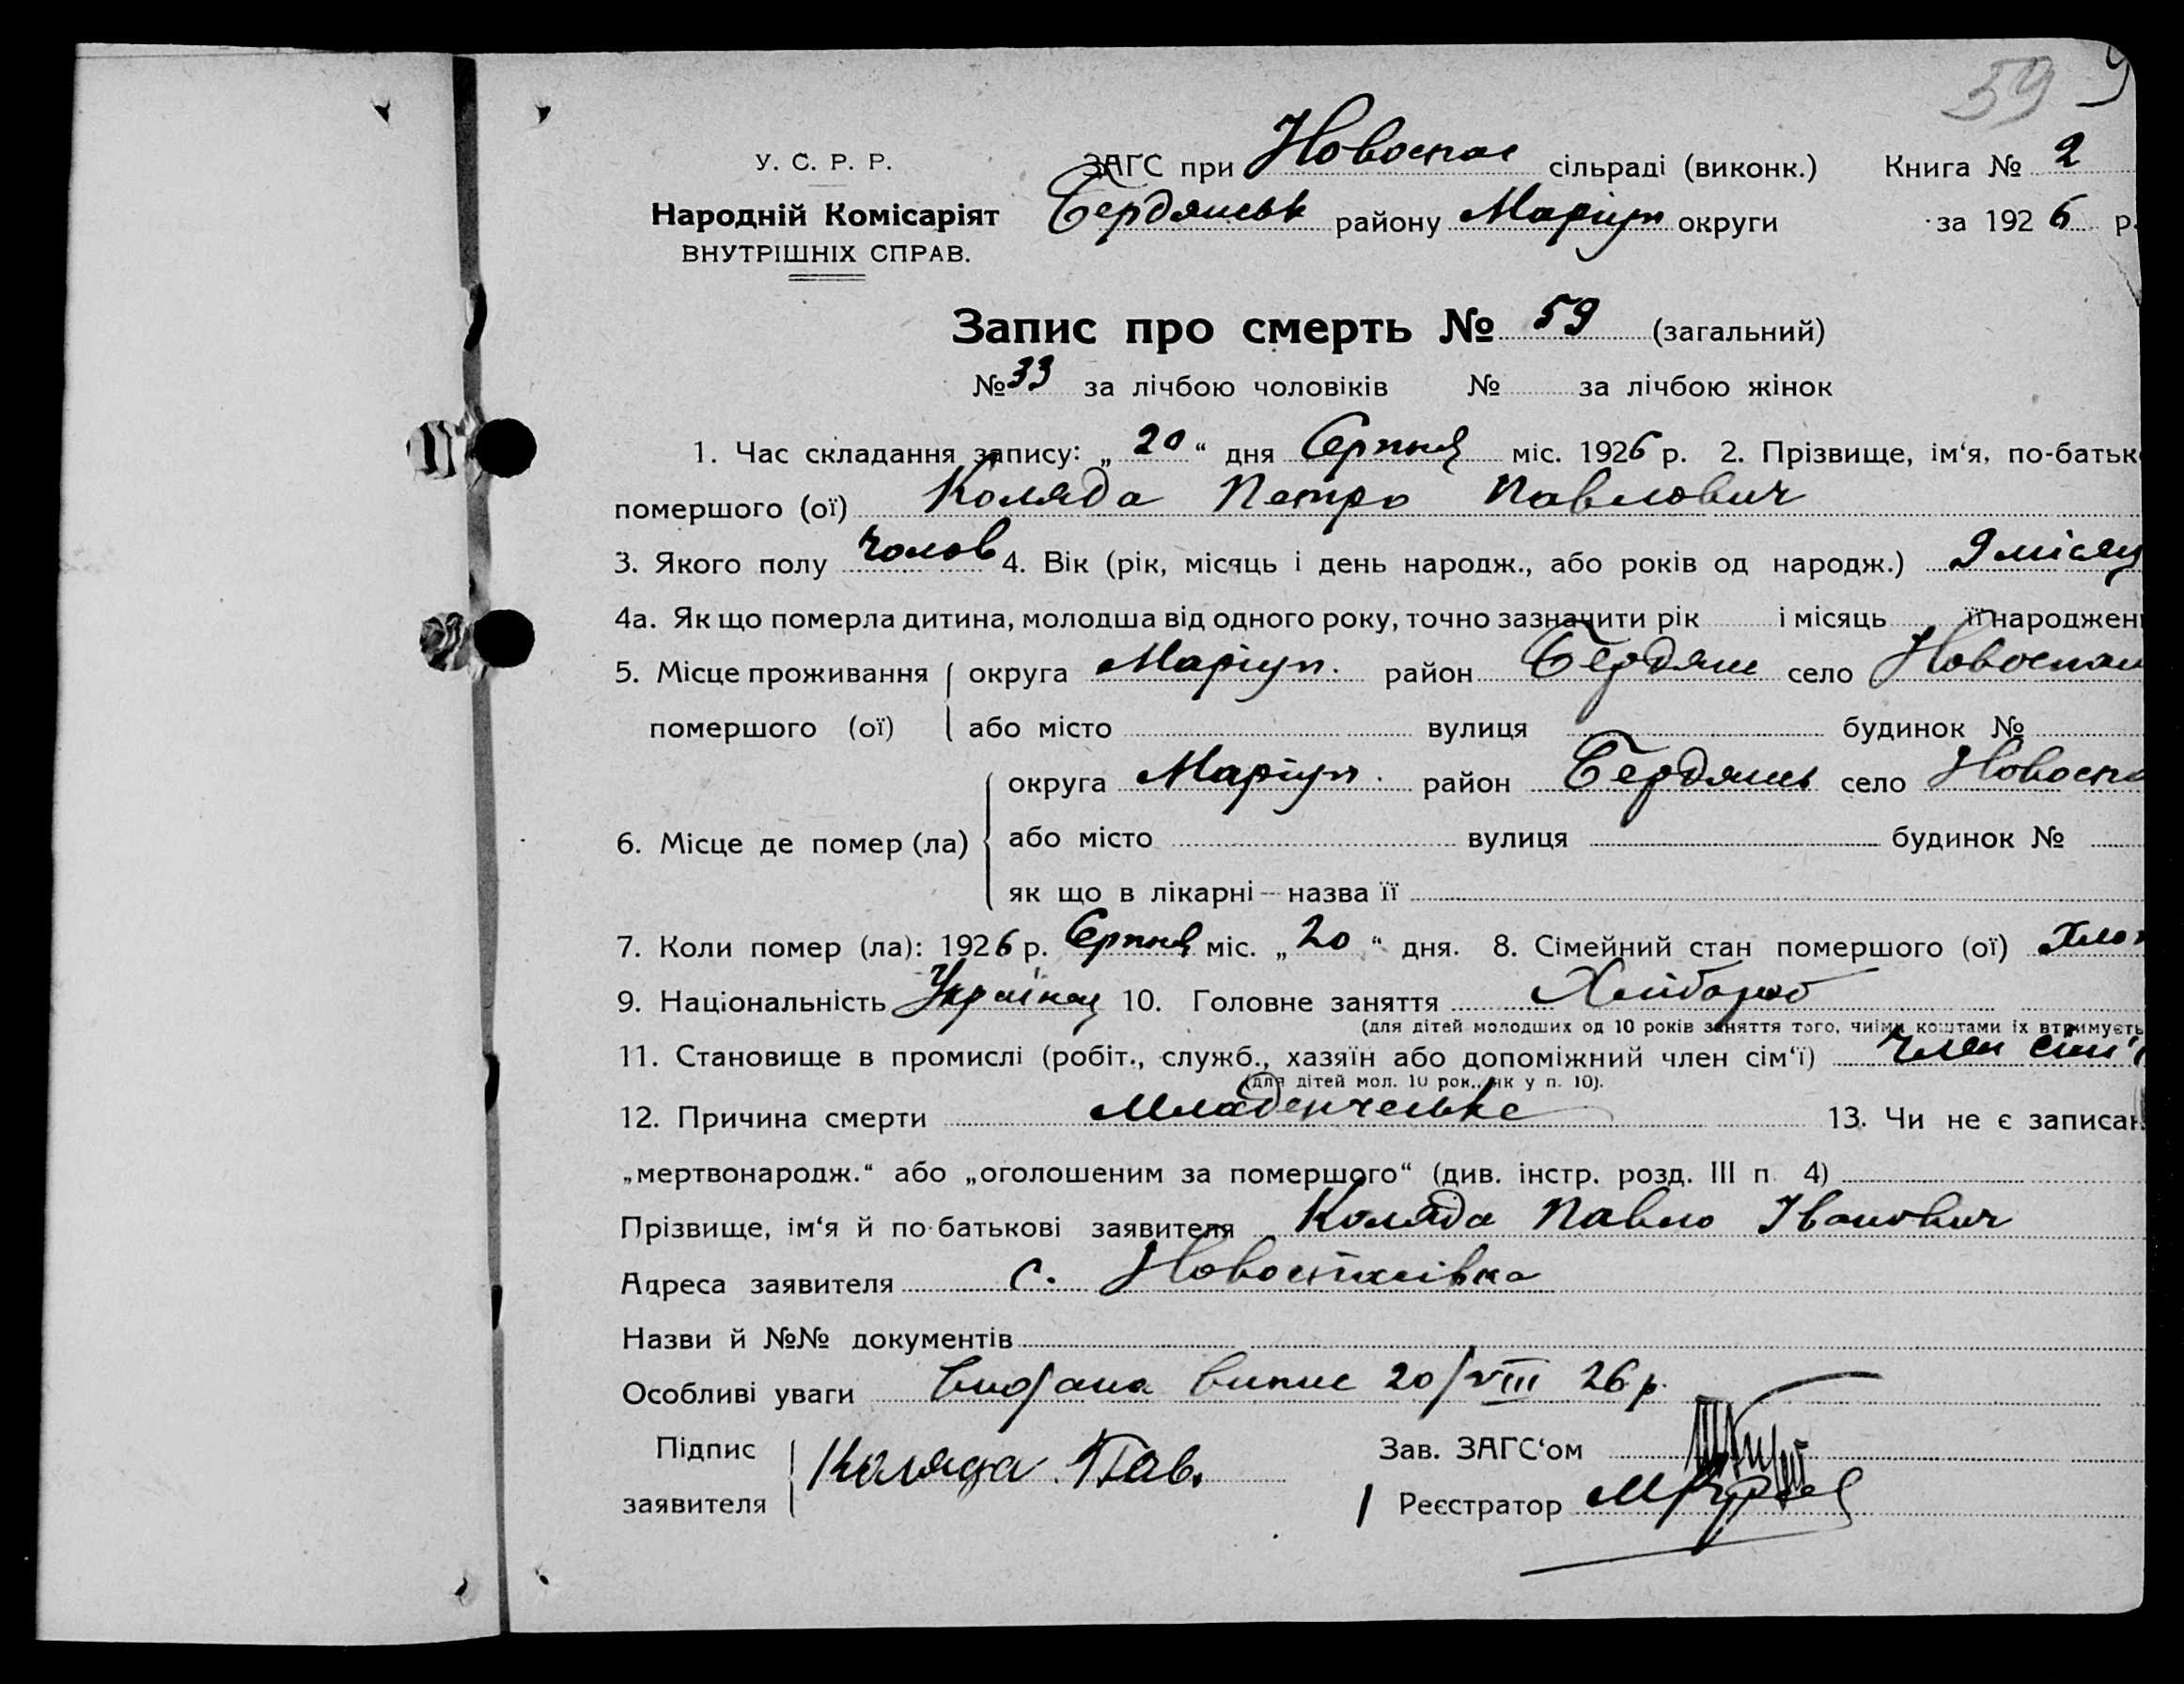 59
У. С. Р. Р. ЗАГС при Новоспас сільраді (виконк.) Книга № 2
Народній Комісаріят Бердянськ району Маріуп округи за 1926 р.
ВНУТРІШНІХ СПРАВ.
Запис про смерть № 59 (загальний)
№ 33 за лічбою чоловіків № за лічбою жінок
1. Час складання запису: „20“ дня Серпня міс. 1926 р. 2. Прізвище, ім‘я, по-батьк
помершого (ої) Коляда Петро Павлович
3. Якого полу чолов 4. Вік (рік, місяць і день народж., або років од народж.) 9 місяц
4а. Як що померла дитина, молодша від одного року, точно зазначити рік і місяць її народжен
5. Місце проживання округа Маріуп. район Бердян село Новоспас
помершого (ої) або місто вулиця будинок №
округа Маріуп. район Бердянь село Новоспа
6. Місце де помер (ла) або місто вулиця будинок №
як що в лікарні — назва її
7. Коли помер (ла): 1926 р. Серпня міс. „20“ дня. 8. Сімейний стан помершого (ої)
9. Національність Українец 10. Головне заняття Хлібороб
(для дітей молодших од 10 років заняття того, чиїми коштами їх втримуєть
11. Становище в промислі (робіт., служб., хазяїн або допоміжний член сім‘ї) Член сім'ї
(для дітей мол. 10 рок., як у п. 10).
12. Причина смерти Младенческе 13. Чи не є записан
„мертвонародж.“ або „оголошеним за помершого“ (див. інстр. розд. III п. 4)
Прізвище, ім‘я й по-батькові заявителя Коляда Павло Іванович
Адреса заявителя с. Новоспасівка
Назви й №№ документів
Особливі уваги Видана випис 20/VIII 26 р.
Підпис Коляда Пав. Зав. ЗАГС‘ом
заявителя Реєстратор